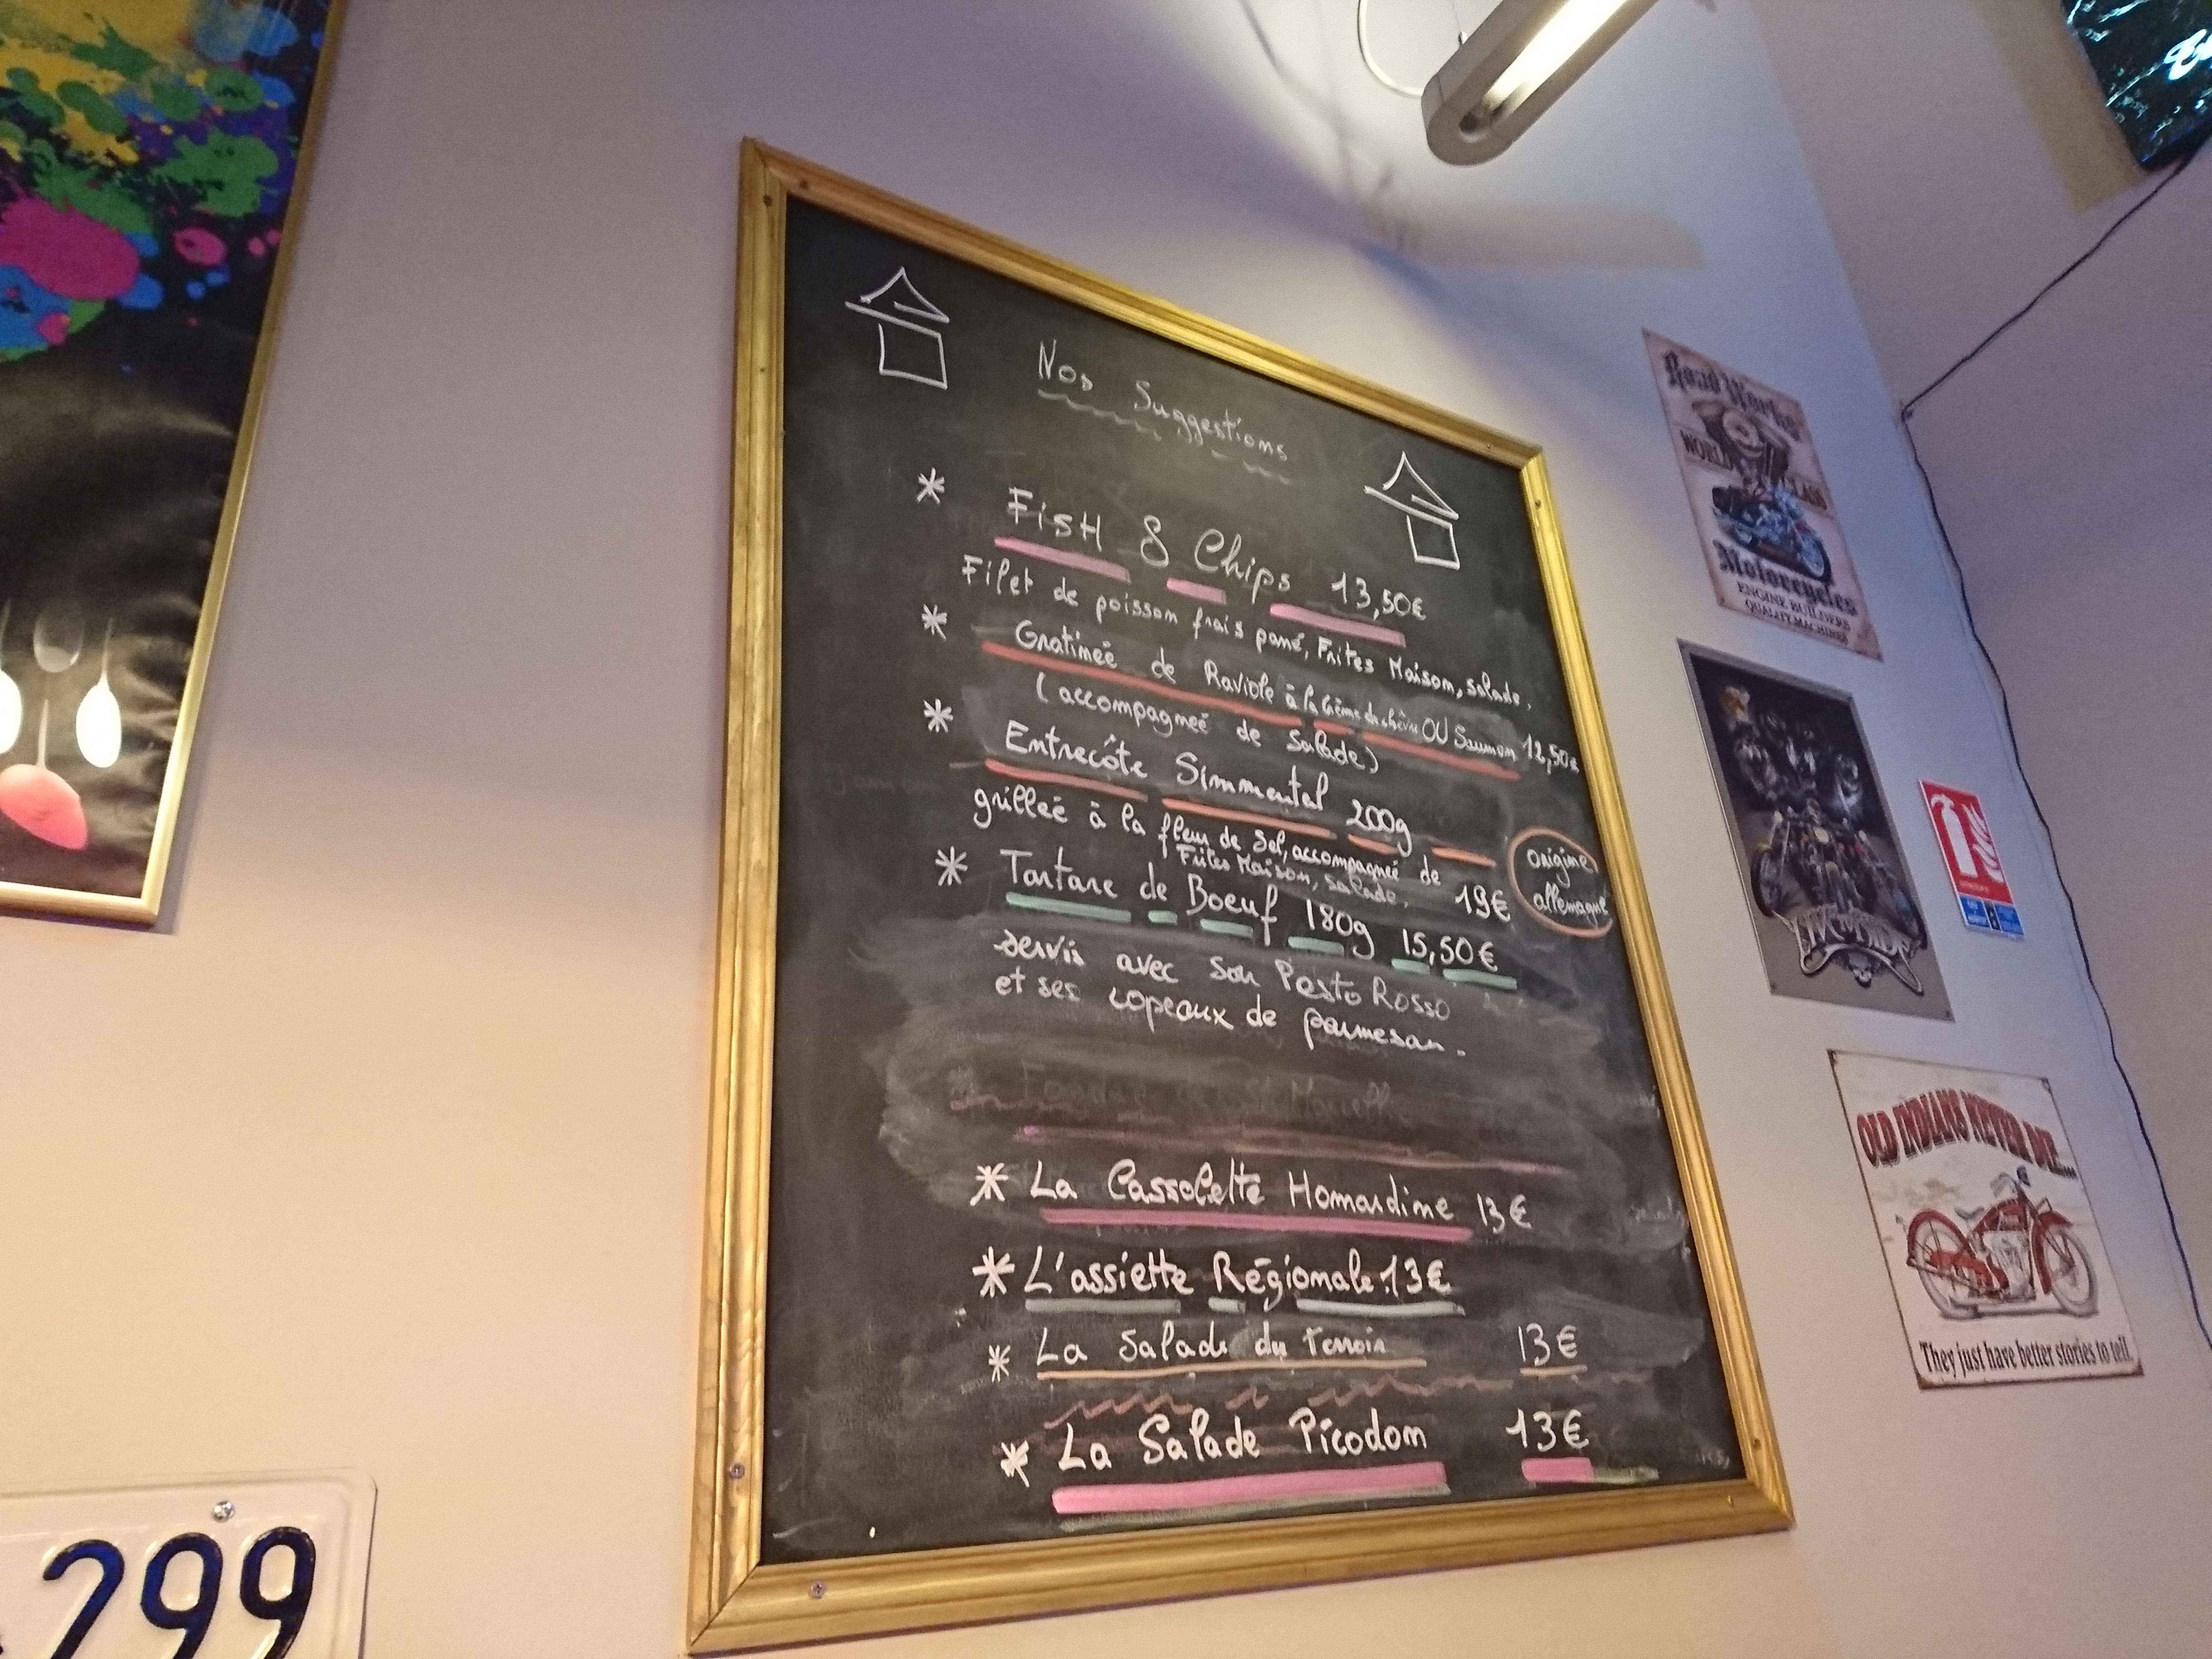 Nos Suggestions
* FisH & Chips 13,50€
Filet de poisson frais pané, Frites Maison, salade.
* Gratineé de Raviole à la Crème de chèvre OU Saumon 12,50€
(accompagneé de Salade)
* Entrecôte Simmental 200g
grilleé à la fleur de Sel, accompagneé de
Frites Maison, salade. 19€
origine
allemagne
* Tartare de Boeuf 180g 15,50€
servis avec son Pesto Rosso
et ses copeaux de parmesan.
* La Cassolette Homardine 13€
* L'assiette Régionale.13€
* La Salade du Terroir 13€
* La Salade Picodon 13€
Road Works
WORLD CLASS
Motorcycles
ENGINE BUILDERS
QUALITY MACHINES
OLD INDIANS NEVER DIE...
They just have better stories to tell.
299